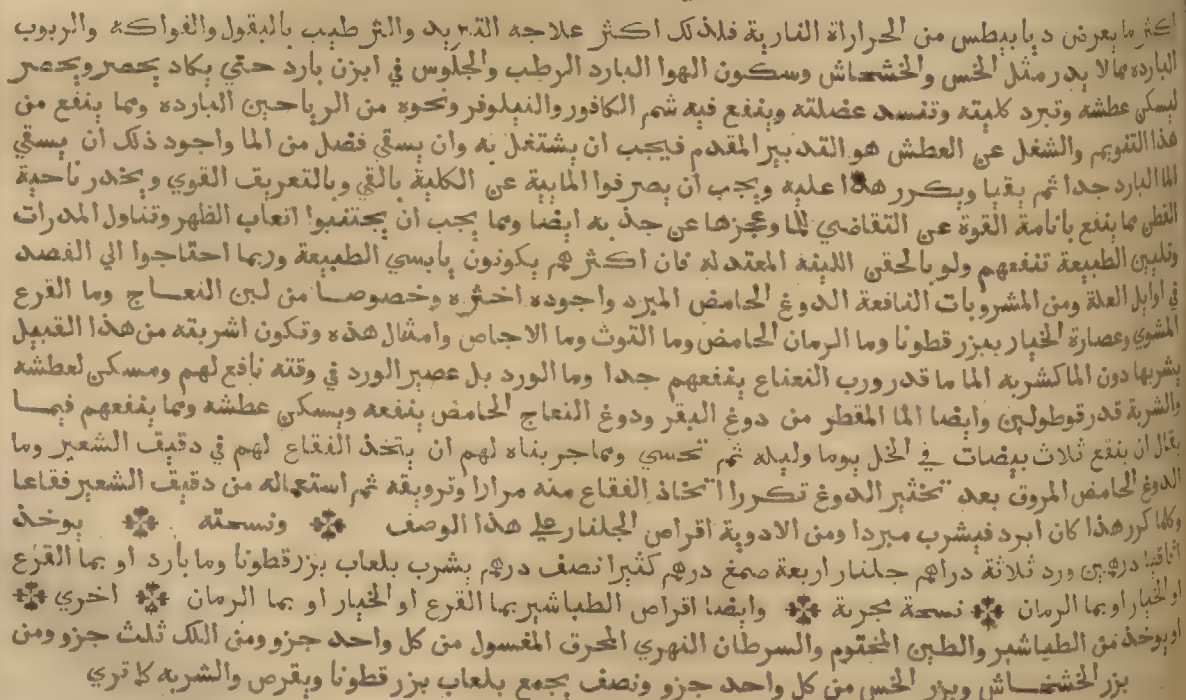 اكثر ما يعرض ديابيطس من الحرارة النارية فلذلك اكثر علاجه التبريد والترطيب بالبقول والفواكه والربوب
الباردة مما لا يدر مثل الخس والخشخاش وسكون الهوا البارد الرطب والجلوس في ابزن بارد حتي يكاد يخصر ويحصر
ليسكن عطشه وتبرد كليته وتنسد عضلته وينفع فيه شم الكافور والنيلوفر ونحوه من الرياحين الباردة ومما ينفع من
هذا التنويم والشغل عن العطش هو التدبير المقدم فيجب ان يشتغل به وان يسقي فضل من الما واجود ذلك ان يسقي
الما البارد جدا ثم يقيا ويكرر هذا عليه ويجب ان يصرفوا المايية عن الكلية بالقي وبالتعريق القوي ويخدر ناحية
القطن مما ينفع بانامة القوة عن التقاضي للما وعجزها عن جذبه ايضا ومما يجب ان يجتنبوا اتعاب الظهر وتناول المدرات
وتليين الطبيعة تنفعهم ولو بالحقن اللينة المعتدلة فان اكثرهم يكونون يابسي الطبيعة وربما احتاجوا الي الفصد
في اوايل العلة ومن المشروبات النافعة الدوغ الحامض المبرد واجوده اخثره وخصوصا من لبن النعاج وما القرع
المشوي وعصارة الخيار ببزر قطونا وما الرمان الحامض وما التوث وما الاجاص وامثال هذه وتكون اشربته من هذا القبيل
يشربها دون الما كشربه الما ما قدر ورب النعناع ينفعهم جدا وما الورد بل عصير الورد في وقته نافع لهم ومسكن لعطشه
والشربة قدر قوطولين وايضا الما المقطر من دوغ البقر ودوغ النعاج الحامض ينفعه ويسكن عطشه ومما ينفعهم فيما
يقال ان ينقع ثلاث بيضات في الخل يوما وليله ثم تحسي ومما جربناه لهم ان يتخذ الفقاع لهم في دقيق الشعير وما
الدوغ الحامض المروق بعد تخثير الدوغ تكررا اتخاذ الفقاع منه مرارا وترويقه ثم استعماله من دقيق الشعير فقاعا
وكلما كرر هذا كان ابرد فيشرب مبردا ومن الادوية اقراص الجلنار علي هذا الوصف ونسخته يوخذ
اقاقيا درهمين ورد ثلاثة دراهم جلنار اربعة صمغ درهم كثيرا نصف درهم يشرب بلعاب بزر قطونا وما بارد او بما القرع
او الخيار او بما الرمان نسخة مجربة وايضا اقراص الطباشير بما القرع او الخيار او بما الرمان اخري
او يوخذ من الطباشير والطين المختوم والسرطان النهري المحرق المغسول من كل واحد جزو ومن اللك ثلث جزو ومن
بزر الخشخاش وبزر الخس من كل واحد جزو ونصف يجمع بلعاب بزر قطونا ويقرص والشربه كما تري